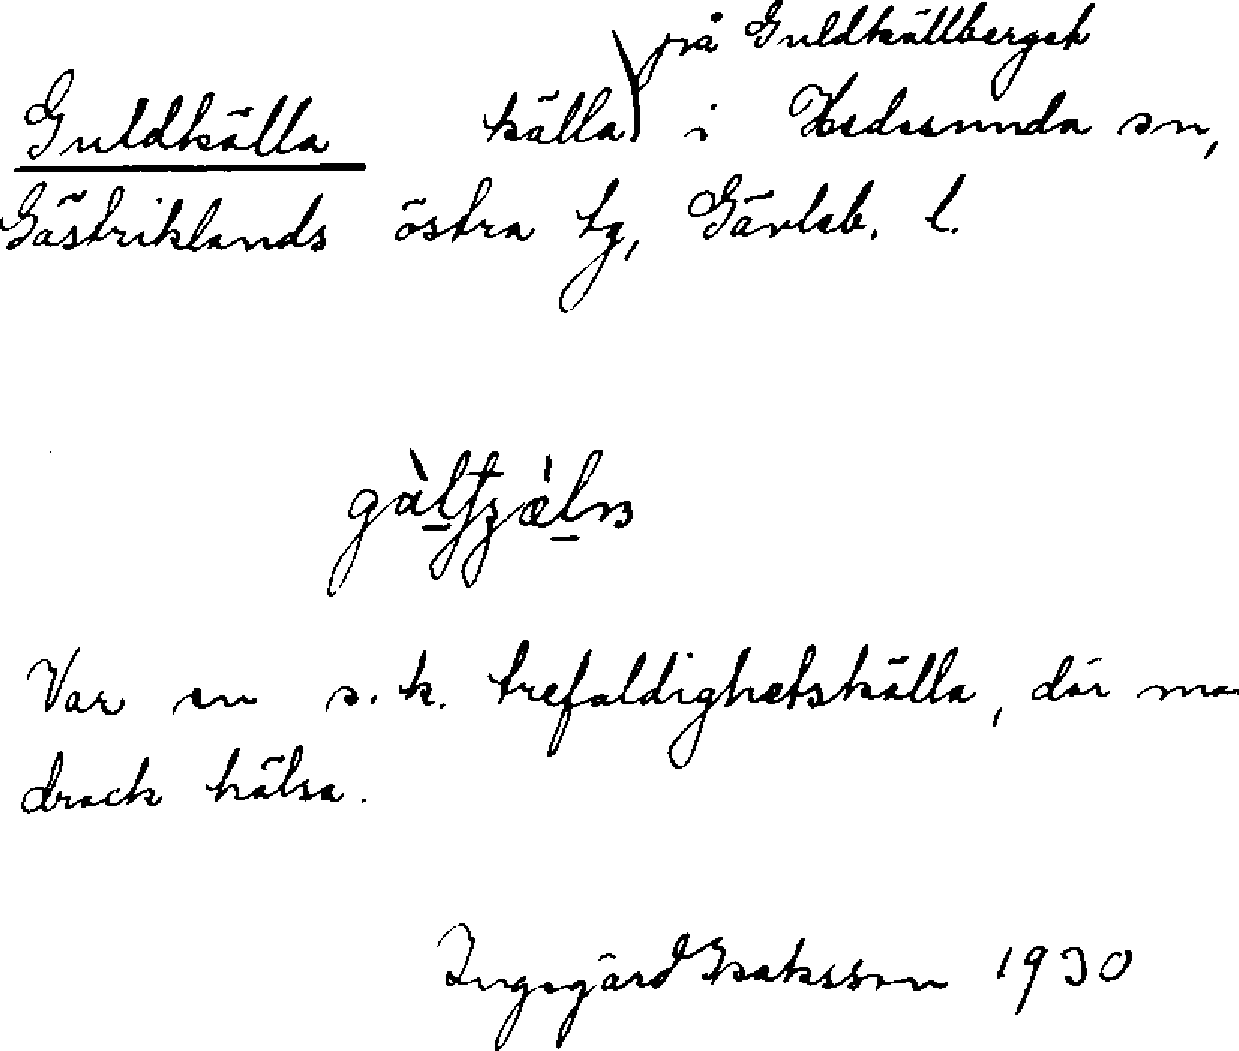 på Guldkällberget
Guldkälla källa i Hedesunda sn,
Gästriklands östra tg, Gävleb. l.
Var en s.k. trefaldighetskälla, där
drack hälsa.
Ingegärd Isaksson 1930